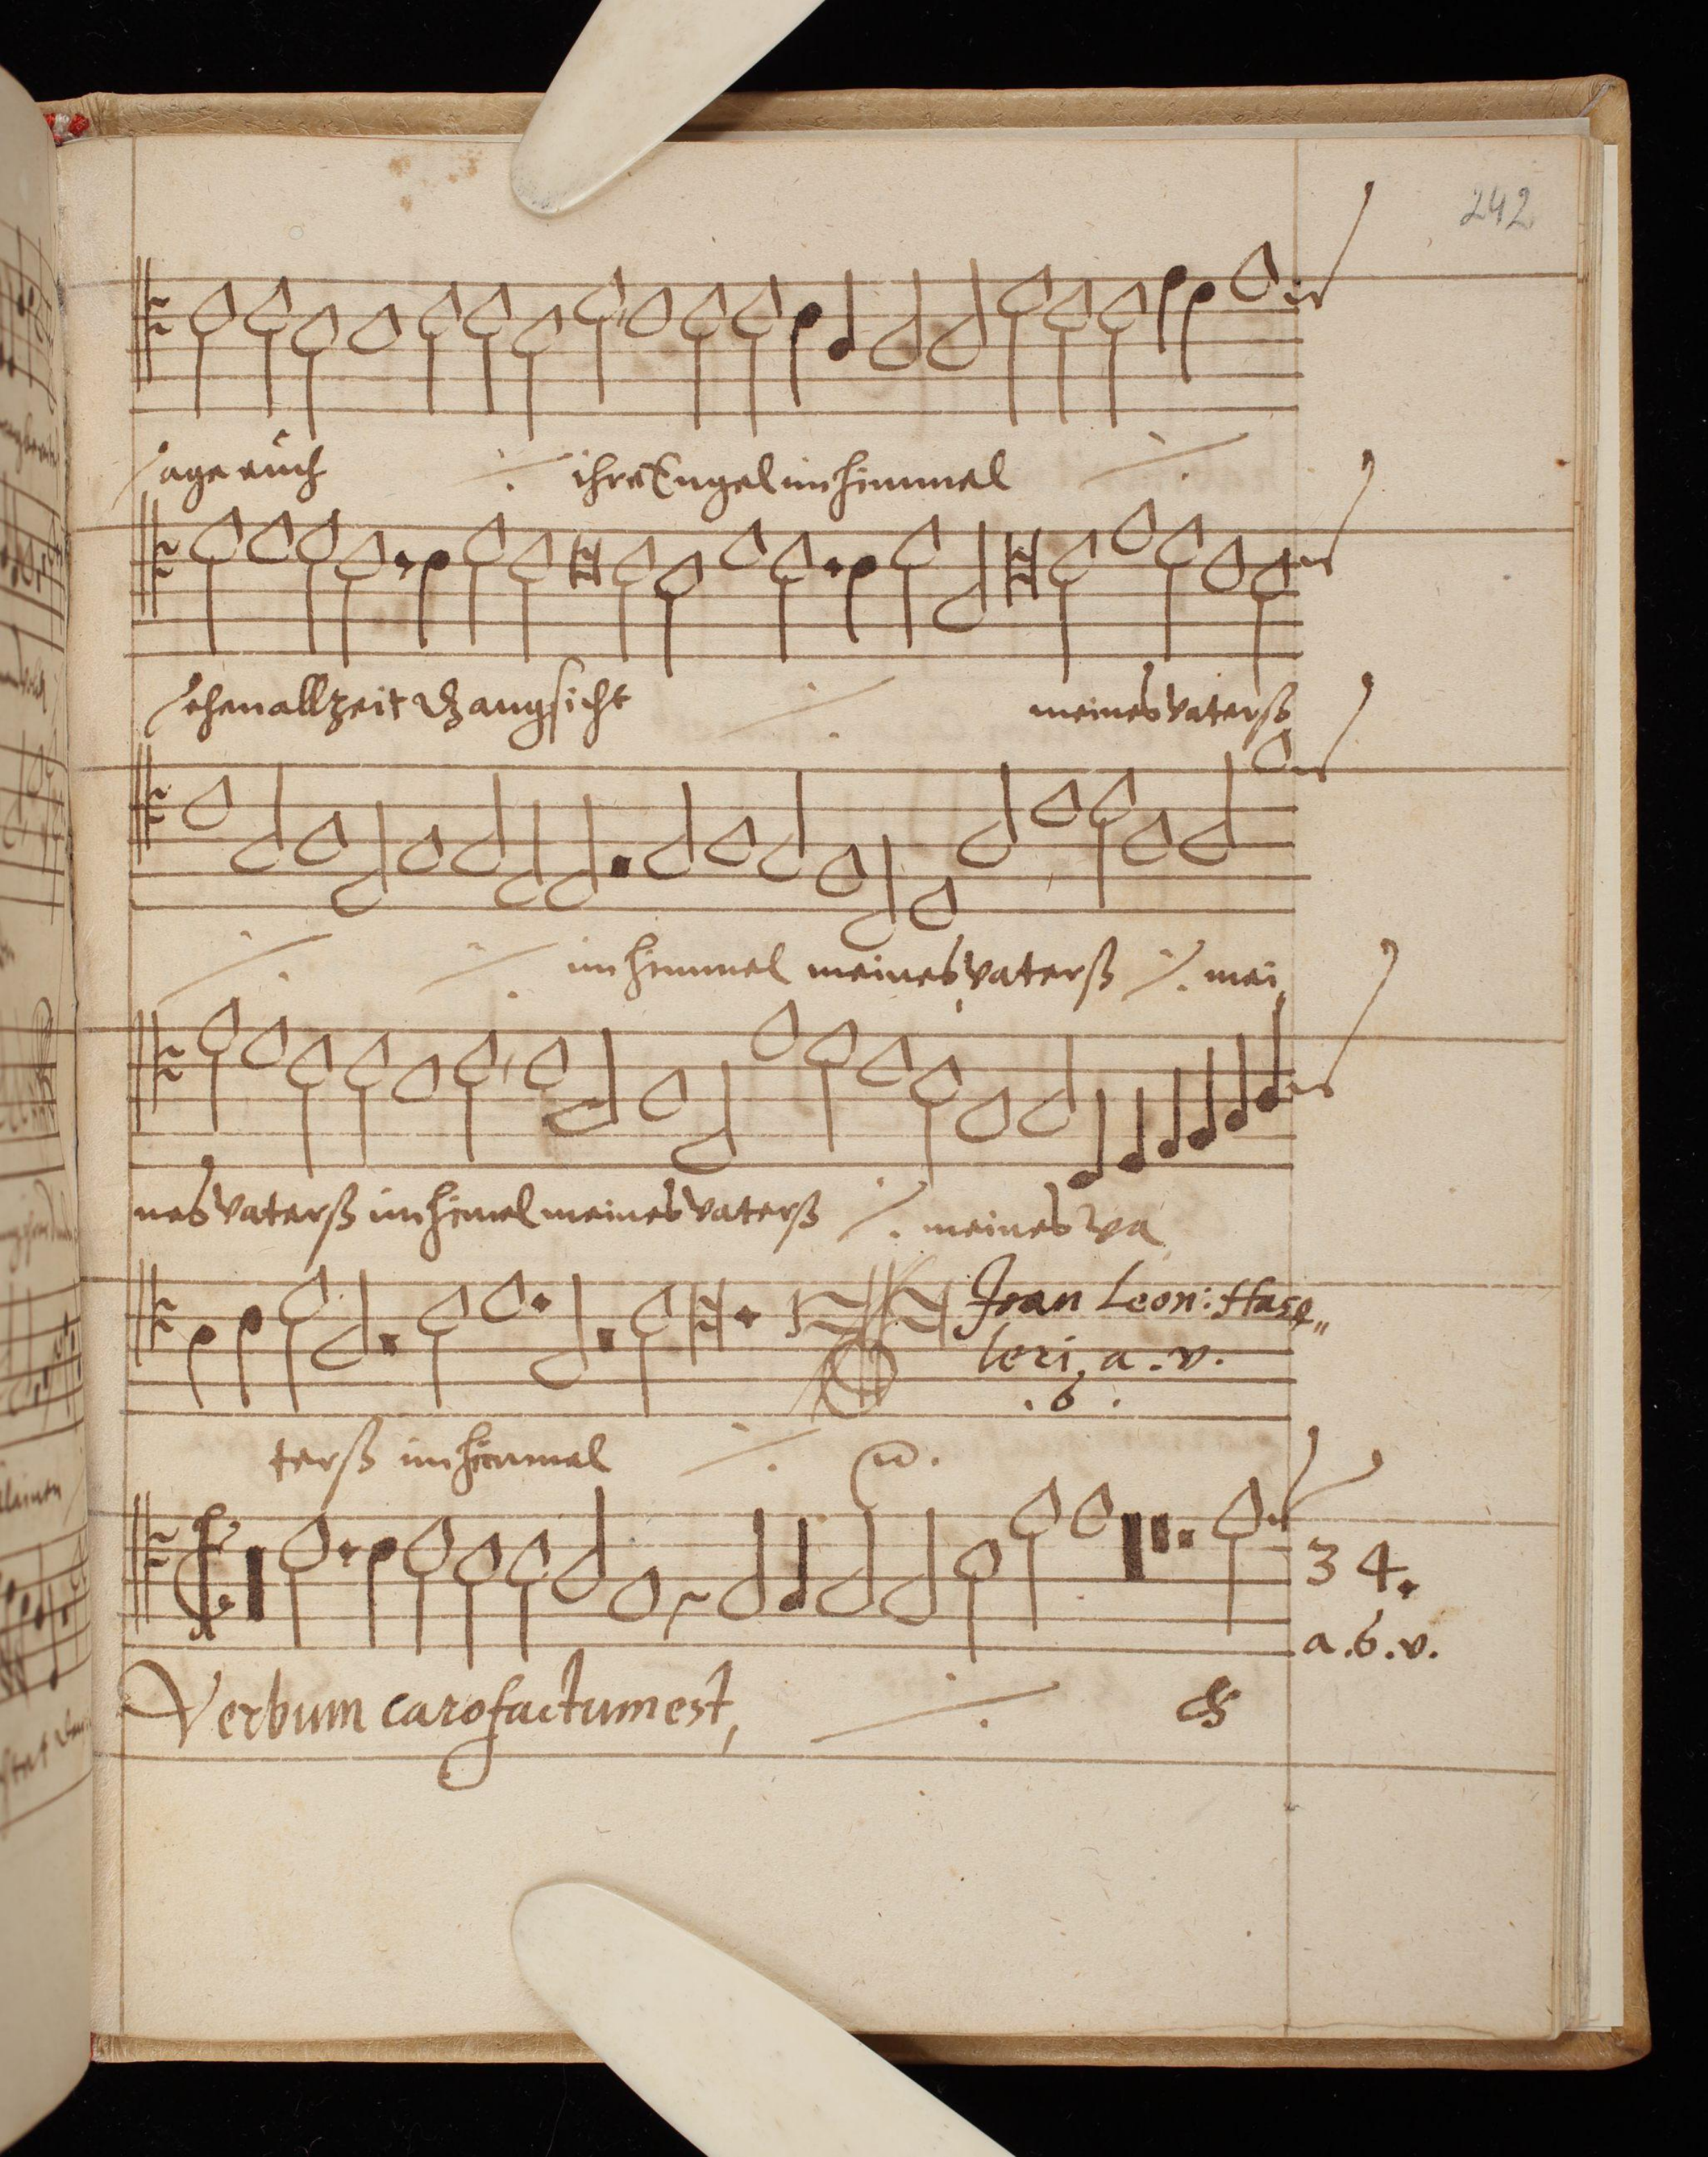 242
sage euch ./. ihre Engel im himmel ./.
sehen allzeit dz angsicht ./. meines vaterß
./. ./. im himmel meines vaterß ./. mei
nes vaterß im himel meines vaterß ./. meines va
Joan Leon: Hasz„
leri, a. v.
. 6 .
terß im himmel ./.
34.
a. 6. v.
Verbum caro factum est, ./.